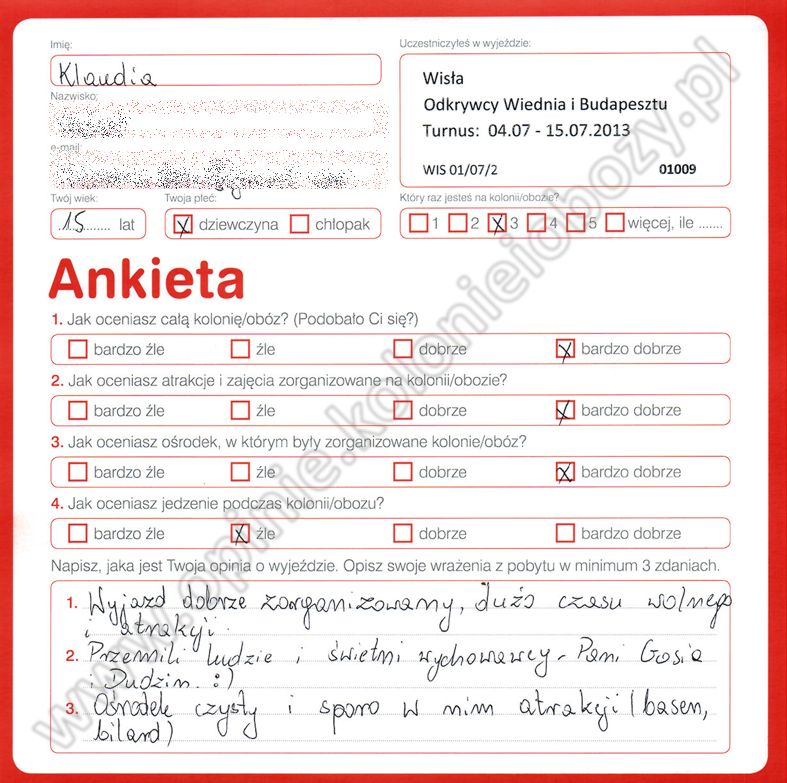 Imię:
Klaudia
Nazwisko:
e-mail:
Twój wiek:
15 lat
Twoja płeć:
dziewczyna chłopak
Uczestniczyłeś w wyjeździe:
Wisła
Odkrywcy Wiednia i Budapesztu
Turnus: 04.07 - 15.07.2013
WIS 01/07/2 01009
Który raz jesteś na kolonii/obozie?
1 2 3 4 5 więcej, ile .......
Ankieta
1. Jak oceniasz całą kolonię/obóz? (Podobało Ci się?)
bardzo źle źle dobrze bardzo dobrze
2. Jak oceniasz atrakcje i zajęcia zorganizowane na kolonii/obozie?
bardzo źle źle dobrze bardzo dobrze
3. Jak oceniasz ośrodek, w którym były zorganizowane kolonie/obóz?
bardzo źle źle dobrze bardzo dobrze
4. Jak oceniasz jedzenie podczas kolonii/obozu?
bardzo źle źle dobrze bardzo dobrze
Napisz, jaka jest Twoja opinia o wyjeździe. Opisz swoje wrażenia z pobytu w minimum 3 zdaniach.
1. Wyjazd dobrze zorganizowany, dużo czasu wolnego
i atrakcji.
2. Przemili ludzie i świetni wychowawcy - Pani Gosia
i Dudzin. :)
3. Ośrodek czysty i sporo w nim atrakcji (basen,
bilard)
www.opinie.kolonieiobozy.pl